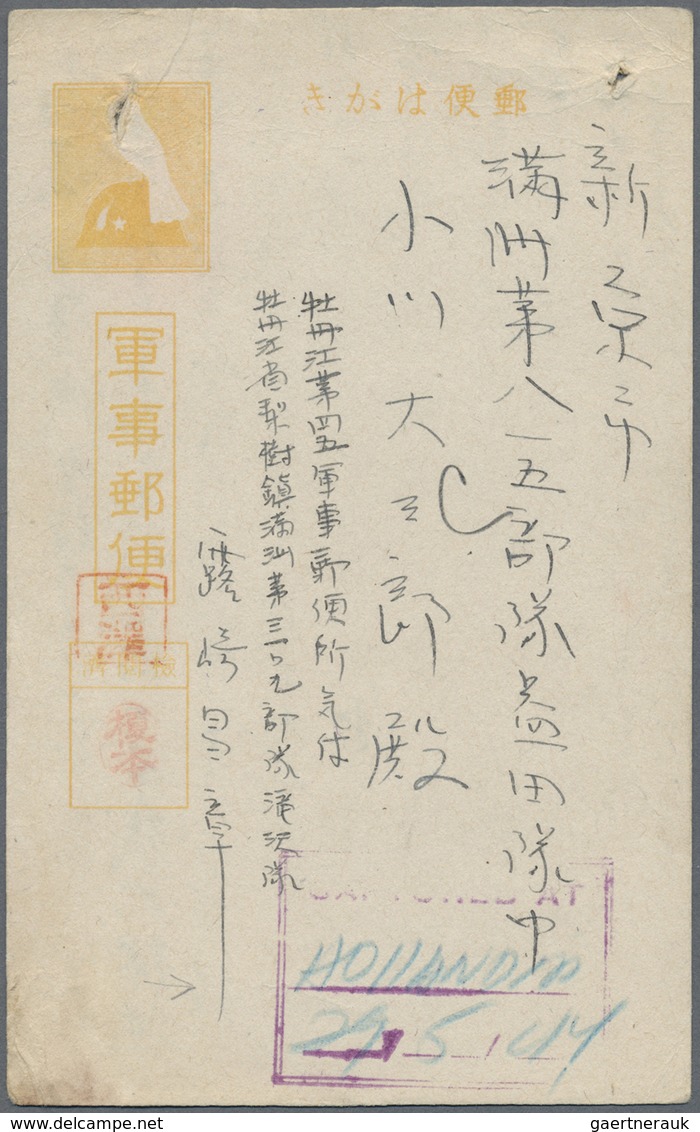 郵便はがき
新京市
満洲第八一五部隊益田隊中
小川大三郎殿
牡丹江第四五軍事郵便所気付
牡丹江省梨樹鎮満洲第三〇九部隊滝沢隊
露崎昌章
軍事郵便
検閲済
榎本
CAPTURED AT
HOLLANDIA
29 5 44
gaertnerauk
gaertnerauk